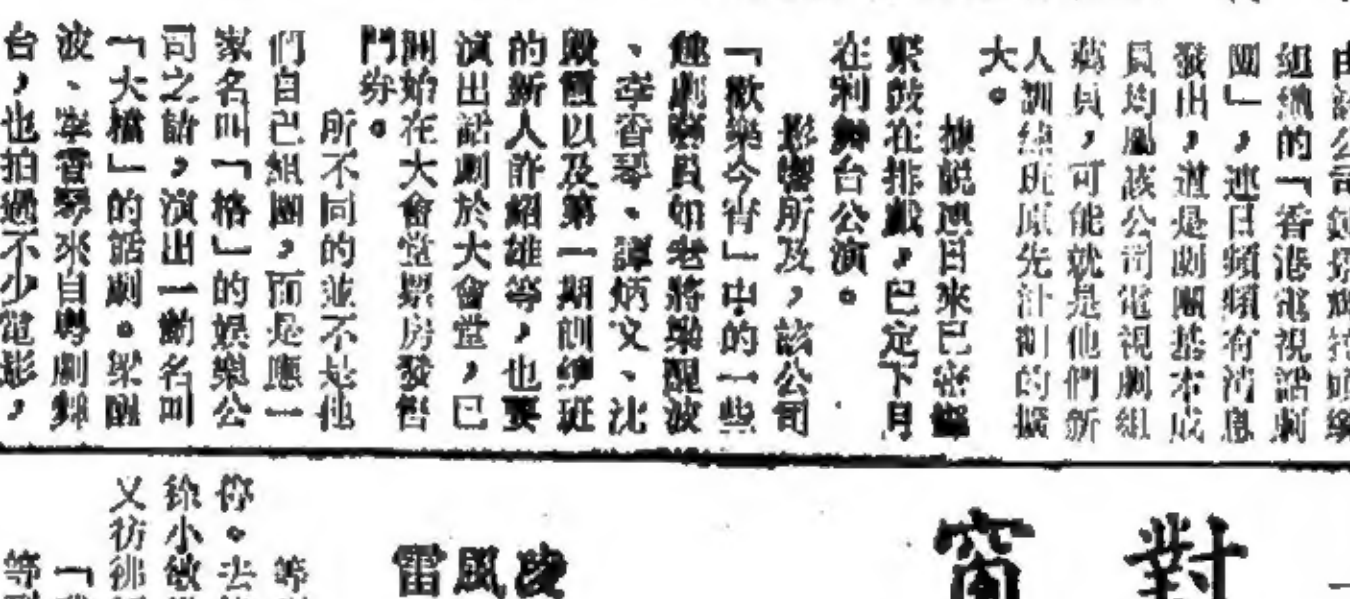 組織的「香港電視話劇
團」,連日頻頻有消息
發出,道是劇團基本成
員均屬該公司電視劇組
藝員,可能就是他們新
人訓練班原先計劃的擴
大。
據説連日來已密鑼
緊鼓在排戲,已定下月
在利舞台公演。
影響所及,該公司
「歡樂今宵」中的一些
趣劇藝員如老將梁醒波
、李香琴、譚炳文、沈
殿霞以及第一期訓練班
的新人許紹雄等,也要
演出話劇於大會堂,已
開始在大會堂票房發售
門券。
所不同的並不是他
們自己組團,而是應一
家名叫「格」的娛樂公
司之請,演出一齣名叫
「大橋」的話劇。梁醒
波、李香琴來自粵劇舞
台,也拍過不少電影,
對窗
風雷
你。去
徐小
又彷彿